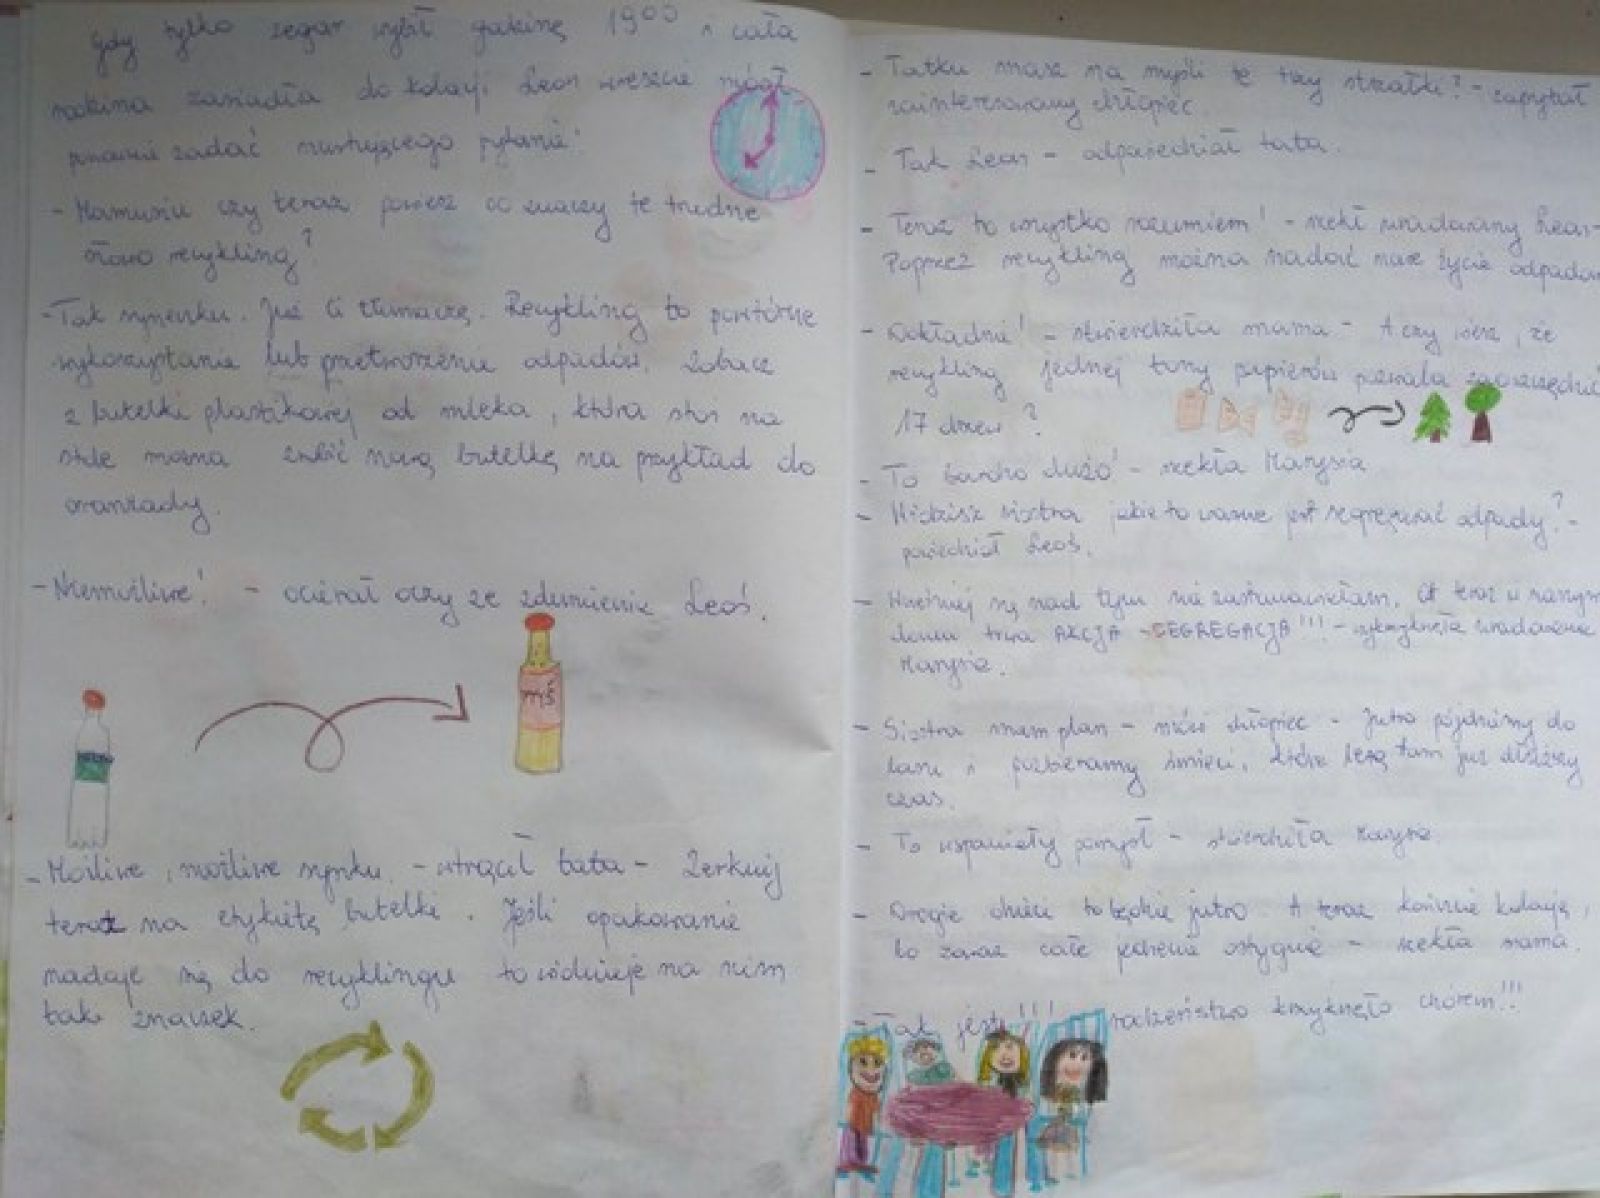 Gdy tylko zegar wybił godzinę 19⁰⁰ i cała
rodzina zasiadła do kolacji Leoś wreszcie mógł
ponownie zadać nurtującego pytanie:
- Mamusiu czy teraz powiesz co znaczy te trudne
słowo recykling?
- Tak syneczku. Już Ci tłumaczę. Recykling to powtórne
wykorzystanie lub przetworzenie odpadów. Zobacz
z butelki plastikowej od mleka, która stoi na
stole można zrobić nową butelkę na przykład do
oranżady.
- Niemożliwe! - ocierał oczy ze zdumienia Leoś.
mś
- Możliwe, możliwe synku. - wtrącił tata - Zerknij
teraz na etykietę butelki. Jeśli opakowanie
nadaje się do recyklingu to widnieje na nim
taki znaczek.
- Tatku masz na myśli te trzy strzałki? - zapytał
zainteresowany chłopiec.
- Tak Leoś - odpowiedział tata.
- Teraz to wszystko rozumiem! - rzekł uradowany Leoś-
Poprzez recykling można nadać nowe życie odpadom
- Dokładnie! - stwierdziła mama - A czy wiesz, że
recykling jednej tony papierów pozwala zaoszczędzić
17 drzew?
- To bardzo dużo! - rzekła Marysia
- Widzisz siostra jakie to ważne jest segregować odpady? -
powiedział Leoś.
- Wcześniej się nad tym nie zastanawiałam. Od teraz w naszym
domu trwa AKCJA - SEGREGACJA!!! - wykrzyknęła uradowana
Marysia.
- Siostra mam plan - mówi chłopiec - Jutro pójdziemy do
lasu i pozbieramy śmieci, które leżą tam już dłuższy
czas.
- To wspaniały pomysł - stwierdziła Marysia.
- Drogie dzieci to będzie jutro. A teraz kończcie kolację,
bo zaraz całe jedzenie ostygnie - rzekła mama.
- Tak jest!!! rodzeństwo krzyknęło chórem!!!